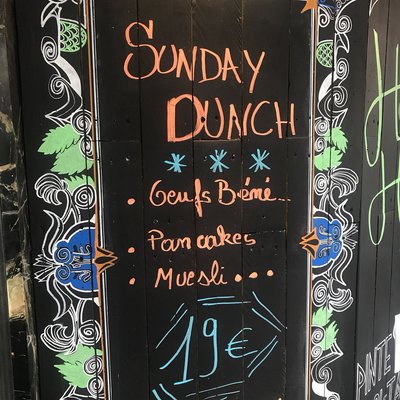 SUNDAY
DUNCH
* * *
. Oeufs Béné...
. Pancakes
. Muesli...
19€
PINTE